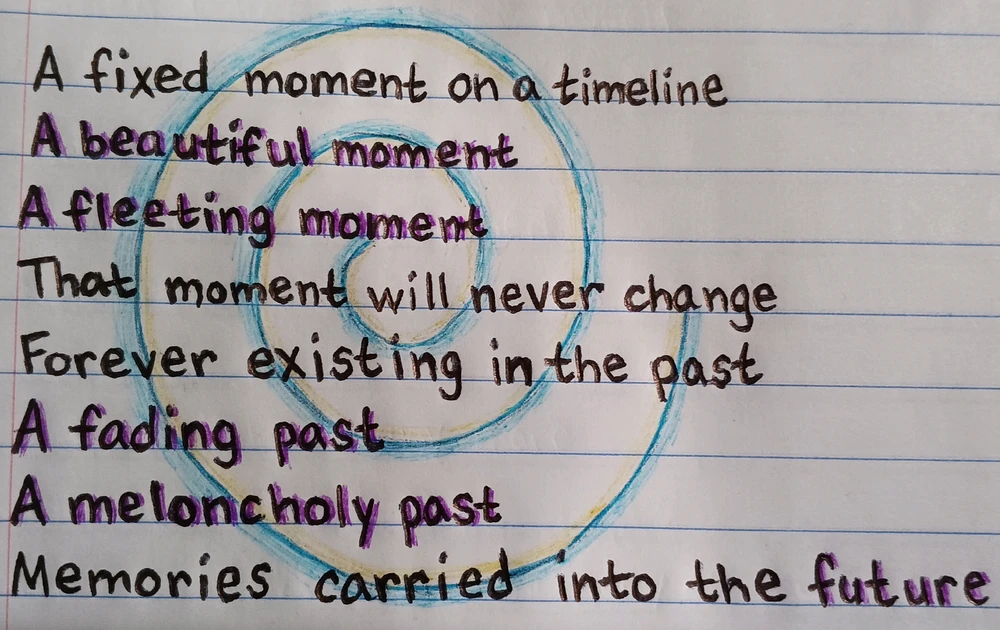 A fixed moment on a timeline
A beautiful moment
A fleeting moment
That moment will never change
Forever existing in the past
A fading past
A meloncholy past
Memories carried into the future